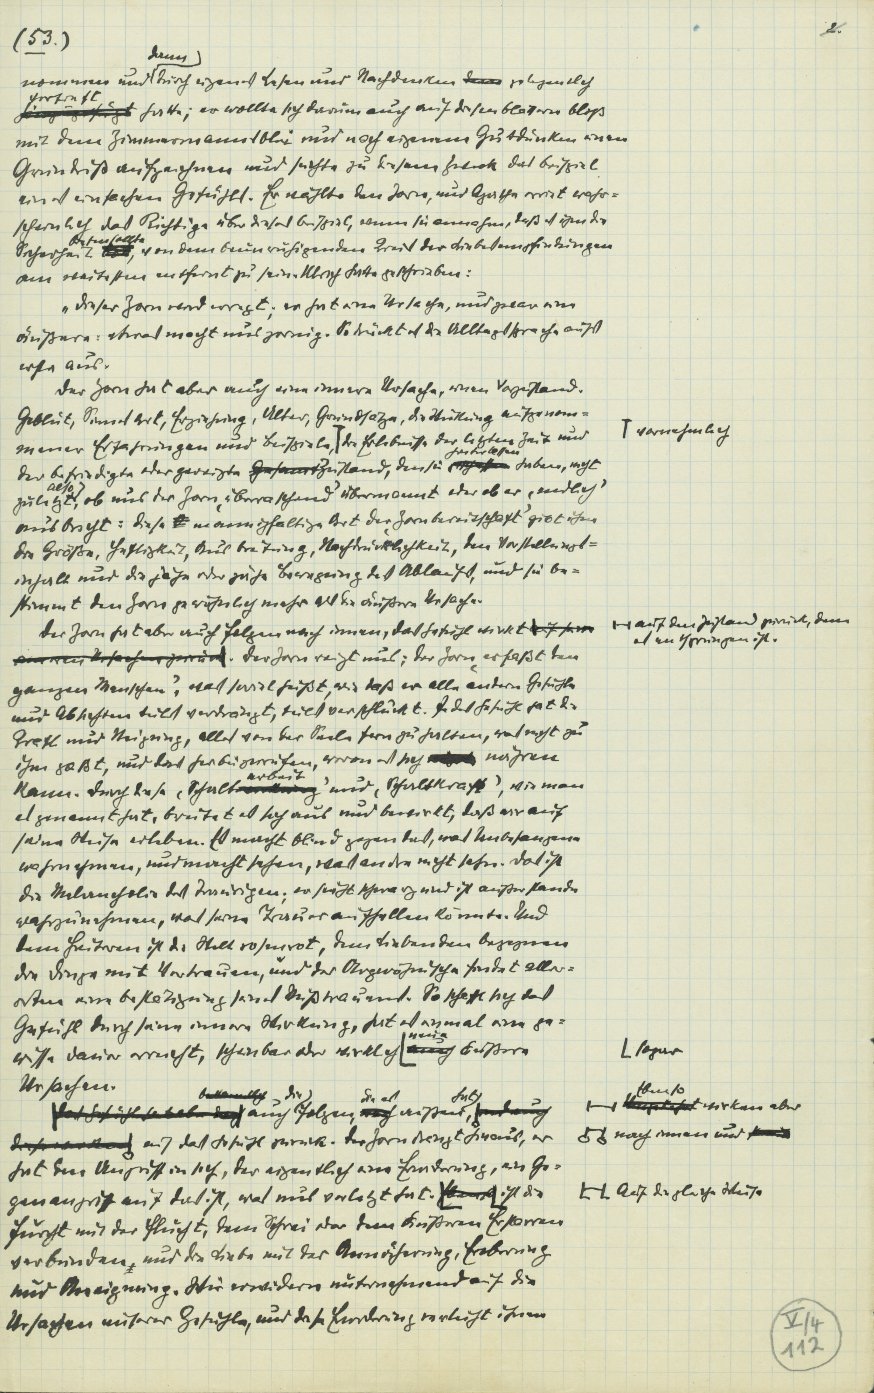 (53.)
2.
nommen und dann durch eigenes Lesen und Nachdenken gelegentlich
hatte; er wollte sich darum auch auf diesen Blättern bloß
mit dem Zimmermannsblei und nach eigenem Gutdünken einen
Grundriß aufzeichnen und suchte zu diesem Zweck das Beispiel
eines einfachen Gefühls. Er wählte den Zorn, und Agathe erriet wahr=
scheinlich das Richtige über dieses Beispiel, wenn sie annahm, daß es ihm die
Sicherheit bieten sollte, von dem beunruhigenden Kreis der Liebesempfindungen
am weitesten entfernt zu sein. Ulrich hatte geschrieben:
„Dieser Zorn wird erregt; er hat eine Ursache, und zwar eine
äußere: etwas macht uns zornig. So drückt es die Alltagssprache aufs
erste aus.
Der Zorn hat aber auch eine innere Ursache, einen Zustand.
Geblüt, Sinnesart, Erziehung, Alter, Grundsätze, die Wirkung aufgenom=
mener Erfahrungen und Beispiele, die Erlebnisse der letzten Zeit und
vornehmlich
der befriedigte oder gereizte Zustand, den sie hinterlassen haben, nicht
zuletzt also, ob uns der Zorn ‚überraschend' übermannt oder ob er ‚endlich'
ausbricht: diese mannigfaltige Art der ‚Zornbereitschaft' gibt ihm
die Größe, Heftigkeit, Ausbreitung, Nachdrücklichkeit, den Vorstellungs=
inhalt und die jähe oder zähe Bewegung des Ablaufs, und sie be=
stimmt den Zorn gewöhnlich mehr als die äußere Ursache.
Der Zorn hat aber auch Folgen nach innen, das Gefühl wirkt
auf den Zustand zurück, dem
es entsprungen ist.
Der Zorn reizt uns; der Zorn ‚erfaßt den
ganzen Menschen', was soviel heißt, wie daß er alle andern Gefühle
und Absichten teils verdrängt, teils verschluckt. Jedes Gefühl hat die
Kraft und Neigung, alles von der Seele fern zu halten, was nicht zu
ihm paßt, und das herbeizurufen, wovon es sich nähren
kann. Durch diese ‚Schaltarbeit' und ‚Schaltkraft', wie man
es genannt hat, breitet es sich aus und bewirkt, daß wir auf
seine Weise erleben. Es macht blind gegen das, was Unbefangene
wahrnehmen, und macht sehen, was andre nicht sehn. Das ist
die Melancholie des Traurigen; er sieht schwarz und ist außerstande
wahrzunehmen, was seine Trauer aufhellen könnte. Und
dem Heiteren ist die Welt rosenrot, dem Liebenden begegnen
die Dinge mit Vertrauen, und der Argwöhnische findet aller=
orten eine Bestätigung seines Mißtrauens. So schafft sich das
Gefühl durch seine innere Wirkung, hat es einmal eine ge=
wisse Dauer erreicht, scheinbar oder wirklich neue äußere
sogar
Ursachen.
auch die Folgen, die es nach außen hat,
ebenso wirken aber
auf das Gefühl zurück. Der Zorn drängt hinaus, er
nach innen und
hat den Angriff in sich, der eigentlich eine Erwiderung, ein Ge=
genangriff auf das ist, was uns verletzt hat. ist die
Auf die gleiche Weise
Furcht mit der Flucht, dem Schrei oder dem äußeren Erstarren
verbunden, und die Liebe mit der Annäherung, Eroberung
und Aneignung. Wir erwidern unternehmend auf die
Ursachen unserer Gefühle, und diese Erwiderung verleiht ihnen
V/4
112